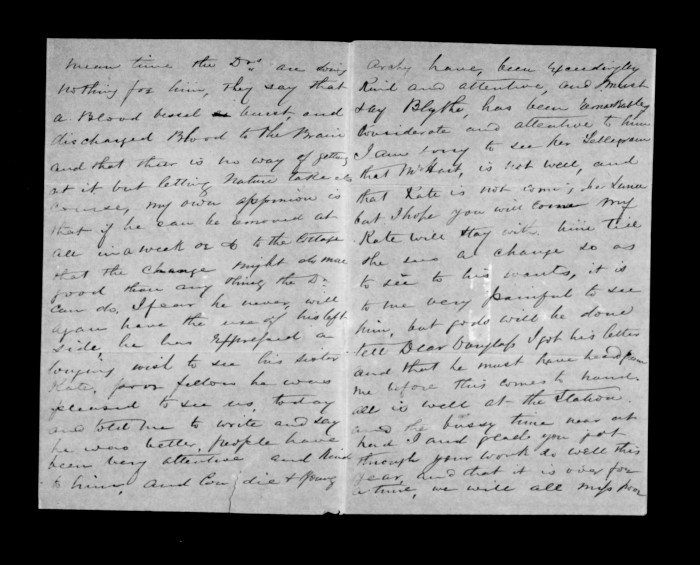 mean time the Drs are doing
nothing for him, they say that
a Blood vessel is burst, and
discharged Blood to the Brain
and that thear is no way of getting
at it but letting Nature take its
course, my own oppinion is
that if he can be mooved at
all in a week or to the Cottage
that the Change might do more
good than any thing the Dr
can do, I fear he never will
again have the use of his left
side, he has Expressed a
longing wish to see his sister
Kate, poor fellow he was
pleased to see us, today
and told me to write and say
he was better, people have
been very attentive and kind
to him, and die & young
Archy have, been Exceedingly
Kind and attentive, and I must
say Blythe, has been
Considerate and attentive to him
I am sorry to see her Tellegram
that Mr Hart, is not well, and
that Kate is not coming,
but I hope you will come My
Kate will stay with him till
she sees a change so as
to see to his wants, it is
to me very painful to see
him, but gods will be done
tell Dear Douglass I got his letter
and that he must have heard from
me before this comes to hand,
all is well at the Station.
and the bussy time near at
hand I and glade you got
through your work so well this
year, and that it is over for
a time, we will all miss poor